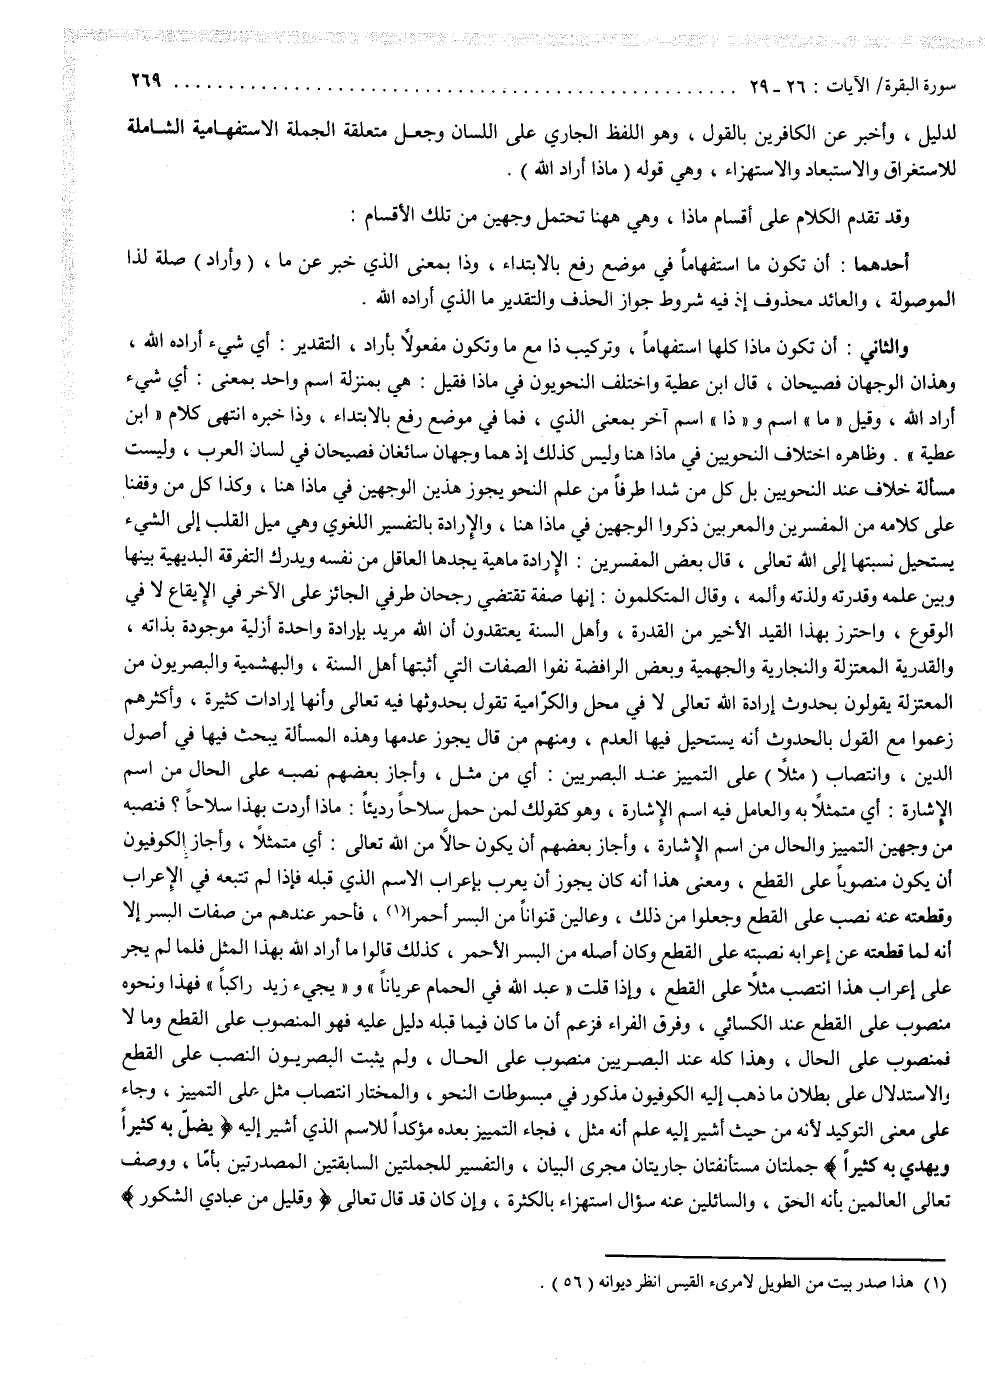 سورة البقرة/ الآيات : ٢٦ ـ ٢٩ . . . . . . . . . . . . . . . . . . . . . . . . . . . . . . . . . . . . . . . . . . . . . . . . . . . . . ٢٦٩
لدليل ، وأخبر عن الكافرين بالقول ، وهو اللفظ الجاري على اللسان وجعل متعلقة الجملة الاستفهامية الشاملة
للاستغراق والاستبعاد والاستهزاء ، وهي قوله ( ماذا أراد الله ) .
وقد تقدم الكلام على أقسام ماذا ، وهي ههنا تحتمل وجهين من تلك الأقسام :
أحدهما : أن تكون ما استفهاماً في موضع رفع بالابتداء ، وذا بمعنى الذي خبر عن ما ، ( وأراد ) صلة لذا
الموصولة ، والعائد محذوف إذ فيه شروط جواز الحذف والتقدير ما الذي أراده الله .
والثاني : أن تكون ماذا كلها استفهاماً ، وتركيب ذا مع ما وتكون مفعولاً بأراد ، التقدير : أي شيء أراده الله ،
وهذان الوجهان فصيحان ، قال ابن عطية واختلف النحويون في ماذا فقيل : هي بمنزلة اسم واحد بمعنى : أي شيء
أراد الله ، وقيل « ما » اسم و « ذا » اسم آخر بمعنى الذي ، فما في موضع رفع بالابتداء ، وذا خبره انتهى كلام « ابن
عطية » . وظاهره اختلاف النحويين في ماذا هنا وليس كذلك إذ هما وجهان سائغان فصيحان في لسان العرب ، وليست
مسألة خلاف عند النحويين بل كل من شدا طرفاً من علم النحو يجوز هذين الوجهين في ماذا هنا ، وكذا كل من وقفنا
على كلامه من المفسرين والمعربين ذكروا الوجهين في ماذا هنا ، والإرادة بالتفسير اللغوي وهي ميل القلب إلى الشيء
يستحيل نسبتها إلى الله تعالى ، قال بعض المفسرين : الإرادة ماهية يجدها العاقل من نفسه ويدرك التفرقة البديهية بينها
وبين علمه وقدرته ولذته وألمه ، وقال المتكلمون : إنها صفة تقتضي رجحان طرفي الجائز على الآخر في الإيقاع لا في
الوقوع ، واحترز بهذا القيد الأخير من القدرة ، وأهل السنة يعتقدون أن الله مريد بإرادة واحدة أزلية موجودة بذاته ،
والقدرية المعتزلة والنجارية والجهمية وبعض الرافضة نفوا الصفات التي أثبتها أهل السنة ، والبهشمية والبصريون من
المعتزلة يقولون بحدوث إرادة الله تعالى لا في محل والكرّامية تقول بحدوثها فيه تعالى وأنها إرادات كثيرة ، وأكثرهم
زعموا مع القول بالحدوث أنه يستحيل فيها العدم ، ومنهم من قال يجوز عدمها وهذه المسألة يبحث فيها في أصول
الدين ، وانتصاب ( مثلاً ) على التمييز عند البصريين : أي من مثل ، وأجاز بعضهم نصبه على الحال من اسم
الإشارة : أي متمثلاً به والعامل فيه اسم الإشارة ، وهو كقولك لمن حمل سلاحاً رديئاً : ماذا أردت بهذا سلاحاً ؟ فنصبه
من وجهين التمييز والحال من اسم الإشارة ، وأجاز بعضهم أن يكون حالاً من الله تعالى : أي متمثلاً ، وأجاز الكوفيون
أن يكون منصوباً على القطع ، ومعنى هذا أنه كان يجوز أن يعرب بإعراب الاسم الذي قبله فإذا لم تتبعه في الإعراب
وقطعته عنه نصب على القطع وجعلوا من ذلك ، وعالين قنواناً من البسر أحمرا(١) ، فأحمر عندهم من صفات البسر إلا
أنه لما قطعته عن إعرابه نصبته على القطع وكان أصله من البسر الأحمر ، كذلك قالوا ما أراد الله بهذا المثل فلما لم يجر
على إعراب هذا انتصب مثلاً على القطع ، وإذا قلت « عبد الله في الحمام عرياناً » و « يجيء زيد راكباً » فهذا ونحوه
منصوب على القطع عند الكسائي ، وفرق الفراء فزعم أن ما كان فيما قبله دليل عليه فهو المنصوب على القطع وما لا
فمنصوب على الحال ، وهذا كله عند البصريين منصوب على الحال ، ولم يثبت البصريون النصب على القطع
والاستدلال على بطلان ما ذهب إليه الكوفيون مذكور في مبسوطات النحو ، والمختار انتصاب مثل على التمييز ، وجاء
على معنى التوكيد لأنه من حيث أشير إليه علم أنه مثل ، فجاء التمييز بعده مؤكداً للاسم الذي أشير إليه ﴿ يضلّ به كثيراً
ويهدي به كثيراً ﴾ جملتان مستأنفتان جاريتان مجرى البيان ، والتفسير للجملتين السابقتين المصدرتين بأمّا ، ووصف
تعالى العالمين بأنه الحق ، والسائلين عنه سؤال استهزاء بالكثرة ، وإن كان قد قال تعالى ﴿ وقليل من عبادي الشكور ﴾
(١) هذا صدر بيت من الطويل لامرىء القيس انظر ديوانه ( ٥٦ ) .